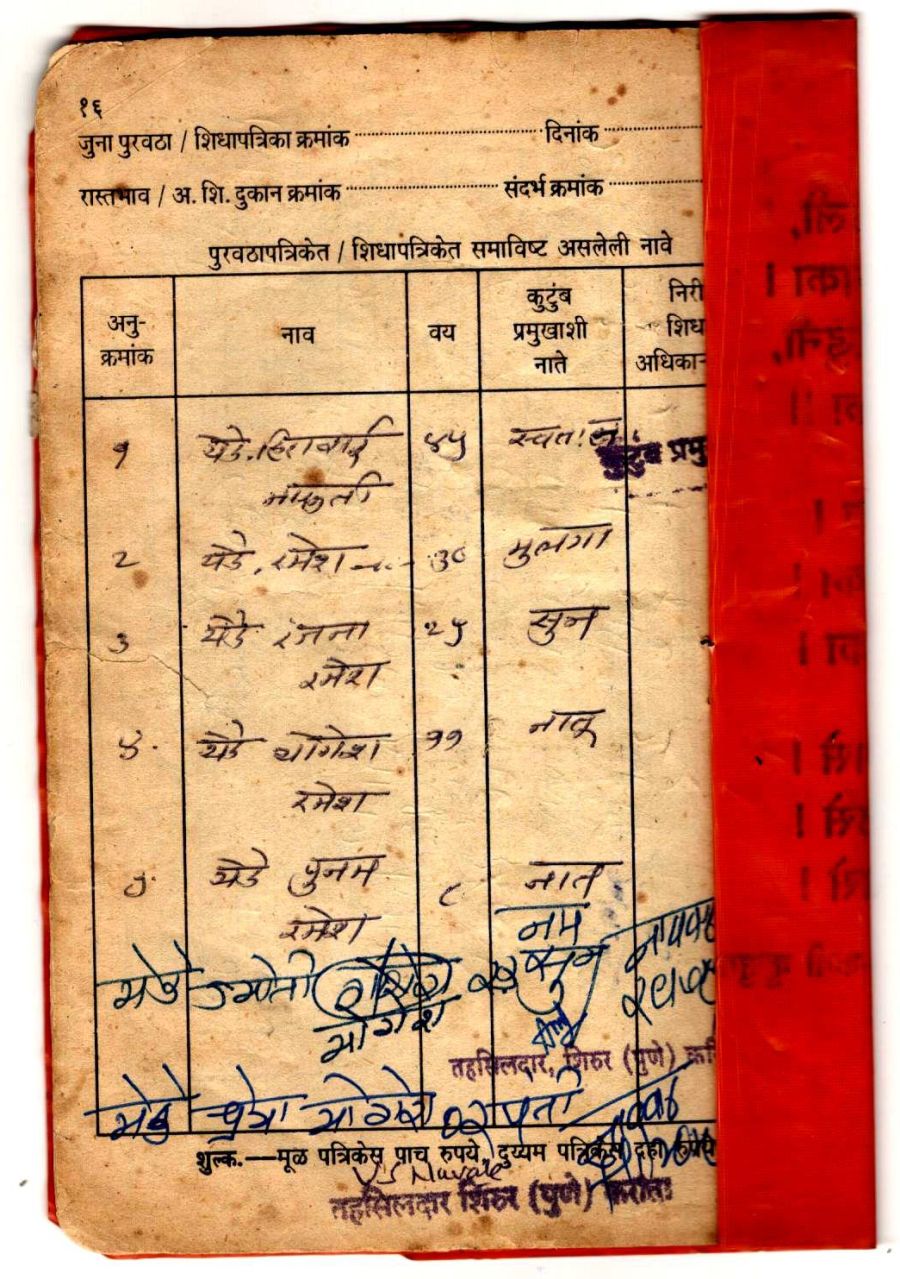 १६
जुना पुरवठा / शिधापत्रिका क्रमांक ........................ दिनांक ............
रास्तभाव / अ. शि. दुकान क्रमांक ........................ संदर्भ क्रमांक ............
पुरवठापत्रिकेत / शिधापत्रिकेत समाविष्ट असलेली नावे
अनु-
क्रमांक
नाव
वय
कुटुंब
प्रमुखाशी
नाते
निरी
शिध
अधिका
१ येडे. हिराबाई ४५ स्वतः
कुटुंब प्रमु
मारुती
२ येडे. रमेश —〃— ३० मुलगा
३ येडे रंजना २५ सुन
रमेश
४. येडे योगेश ११ नातू
रमेश
५. येडे पुनम ८ नात
रमेश
नात
येडे ज्योती सुन
योगेश
तहसिलदार, शिरुर (पुणे) करि
येडे योगेश
शुल्क.—मूळ पत्रिकेस पाच रुपये, दुय्यम पत्रिकेस दहा रुपये
तहसिलदार शिरुर (पुणे) करीता